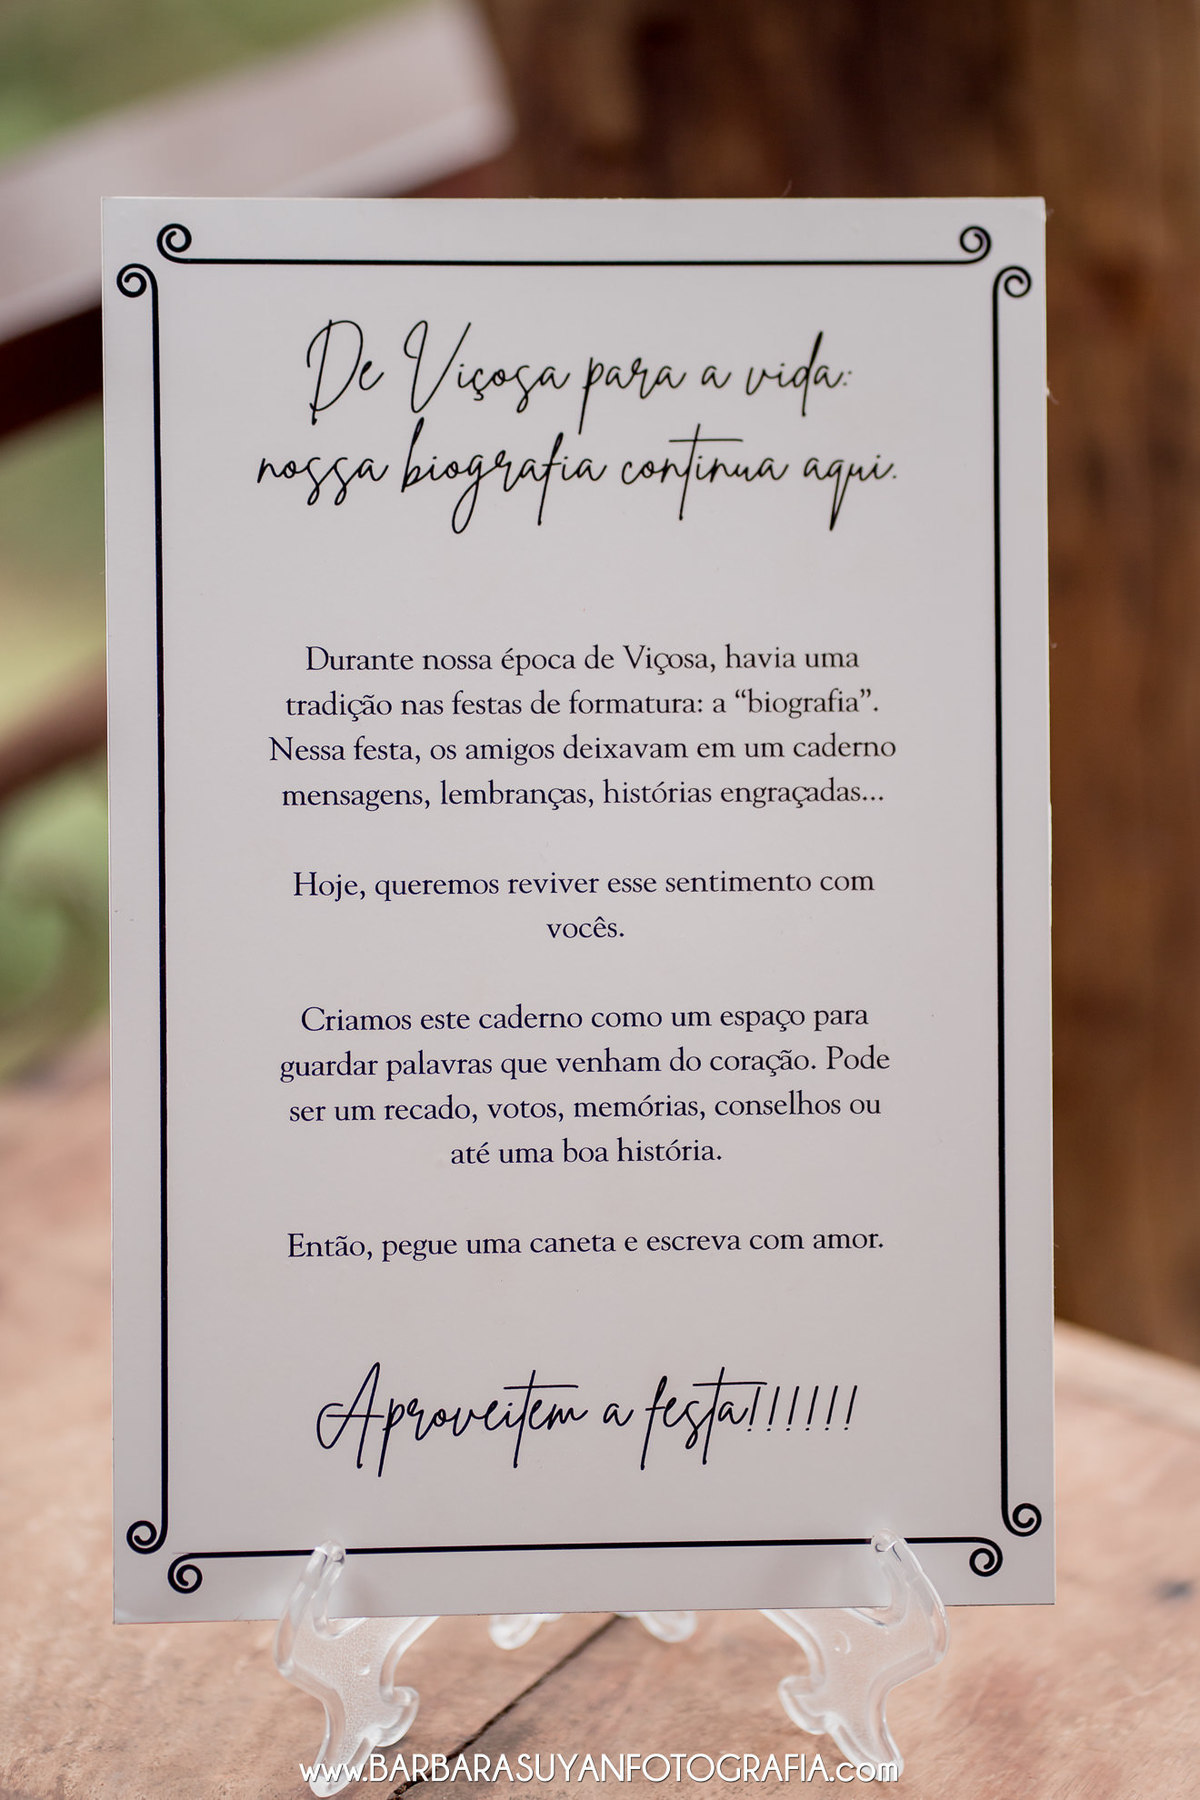 De Viçosa para a vida:
nossa biografia continua aqui.
Durante nossa época de Viçosa, havia uma
tradição nas festas de formatura: a “biografia”.
Nessa festa, os amigos deixavam em um caderno
mensagens, lembranças, histórias engraçadas...
Hoje, queremos reviver esse sentimento com
vocês.
Criamos este caderno como um espaço para
guardar palavras que venham do coração. Pode
ser um recado, votos, memórias, conselhos ou
até uma boa história.
Então, pegue uma caneta e escreva com amor.
Aproveitem a festa!!!!!!
www.BARBARASUYANFOTOGRAFIA.com